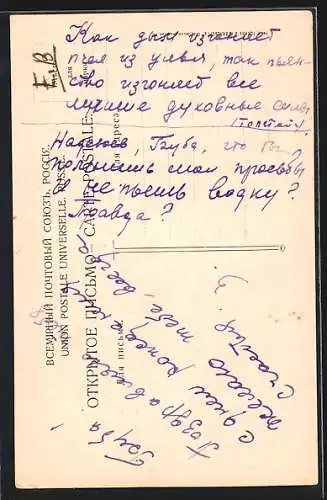 Какъ дым изгоняет
пчел из улья, так пьян-
ство изгоняет все
лучшие духовные силы.
(Толстой)
Надеюсь, Груба, что ты
исполнишь мои просьбы
и не пьешь водку?
Правда?
ВСЕМІРНЫЙ ПОЧТОВЫЙ СОЮЗЪ. РОССІЯ.
UNION POSTALE UNIVERSELLE. RUSSIE.
ОТКРЫТОЕ ПИСЬМО — CARTE POSTALE
Для письма.
Для адреса
Груба
Поздравляю
с днем рожде
желаю тебе, всего
счастья